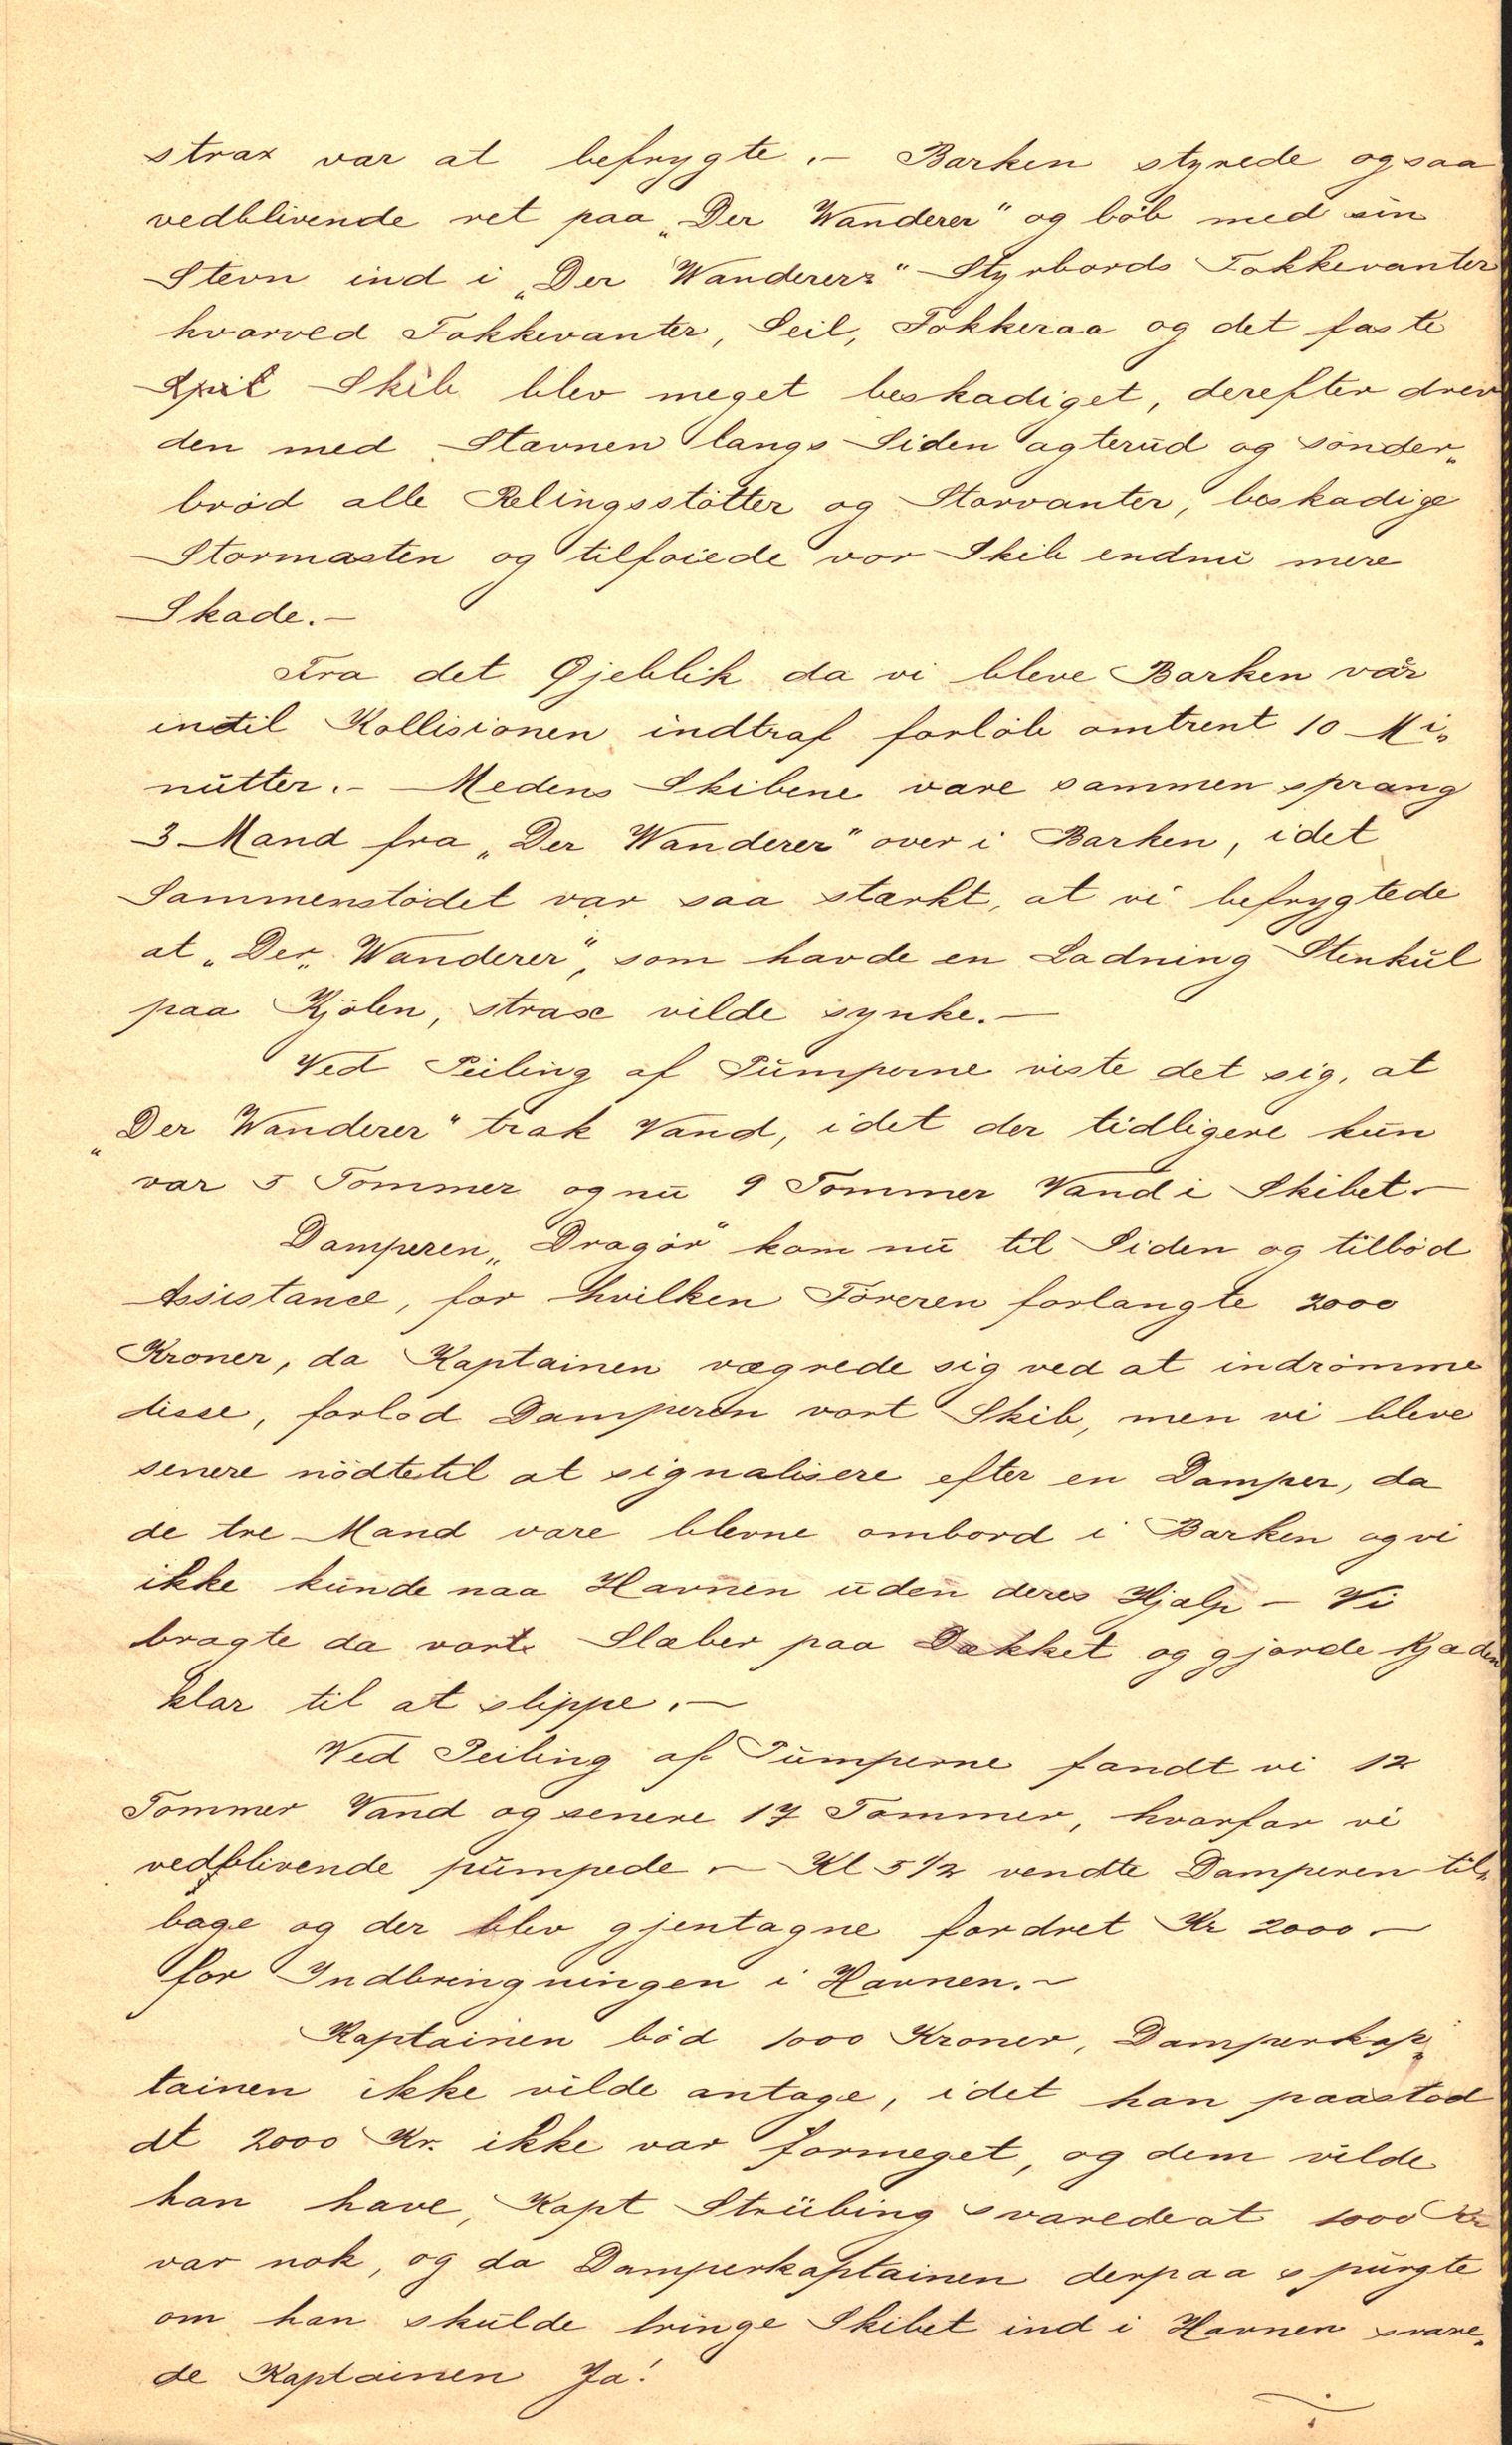 strax var at befrygte.– Barken styrede ogsaa
vedblivende ret paa „Der Wanderer“ og löb med sin
Stevn ind i „Der Wanderers“ Styrbords Fokkevanter
hvorved Fokkevanter, Seil, Fokkeraa og det faste
Spil Skib blev meget beskadiget, derefter drev
den med Stavnen langs Siden agterud og sönder„
bröd alle Relingsstötter og Storvanter, beskadige
Stormasten og tilföiede vor Skib endnu mere
Skade.–
Fra det Öjeblik da vi bleve Barken vár
indtil Kollisionen indtraf forlöb omtrent 10 Mi„
nutter.– Medens Skibene vare sammen sprang
3 Mand fra „Der Wanderer“ over i Barken, idet
Sammenstödet var saa stærkt, at vi befrygtede
at „Der„ Wanderer“, som havde en Ladning Stenkul
paa Kjölen, strax vilde synke.–
Ved Peiling af Pumperne viste det sig, at
„Der Wanderer“ trak Vand, idet der tidligere kun
var 5 Tommer og nu 9 Tommer Vand i Skibet.–
Damperen „Dragör“ kom nu til Siden og tilböd
Assistance, for hvilken Föreren forlangte 2000
Kroner, da Kaptainen vægrede sig ved at indrömme
disse, forlod Damperen vort Skib, men vi bleve
senere nödtetil at signalisere efter en Damper, da
de tre Mand vare blevne ombord i Barken og vi
ikke kunde naa Havnen uden deres Hjælp – Vi
bragte da vort Slæber paa Dækket og gjorde Kjæden
klar til at slippe.–
Ved Peiling af Pumperne fandt vi 12
Tommer Vand og senere 17 Tommer, hvorfor vi
vedblivende pumpede – Kl 5 1/2 vendte Damperen til„
bage og der blev gjentagne fordret Kr 2000 –
for Indbringningen i Havnen.–
Kaptainen böd 1000 Kroner, Damperkap„
tainen ikke vilde antage, idet han paastod
at 2000 Kr. ikke var formeget, og dem vilde
han have, Kapt Strübing svarede at 1000 Kr
var nok, og da Damperkaptainen derpaa spurgte
om han skulde bringe Skibet ind i Havnen svare„
de Kaptainen Ja!